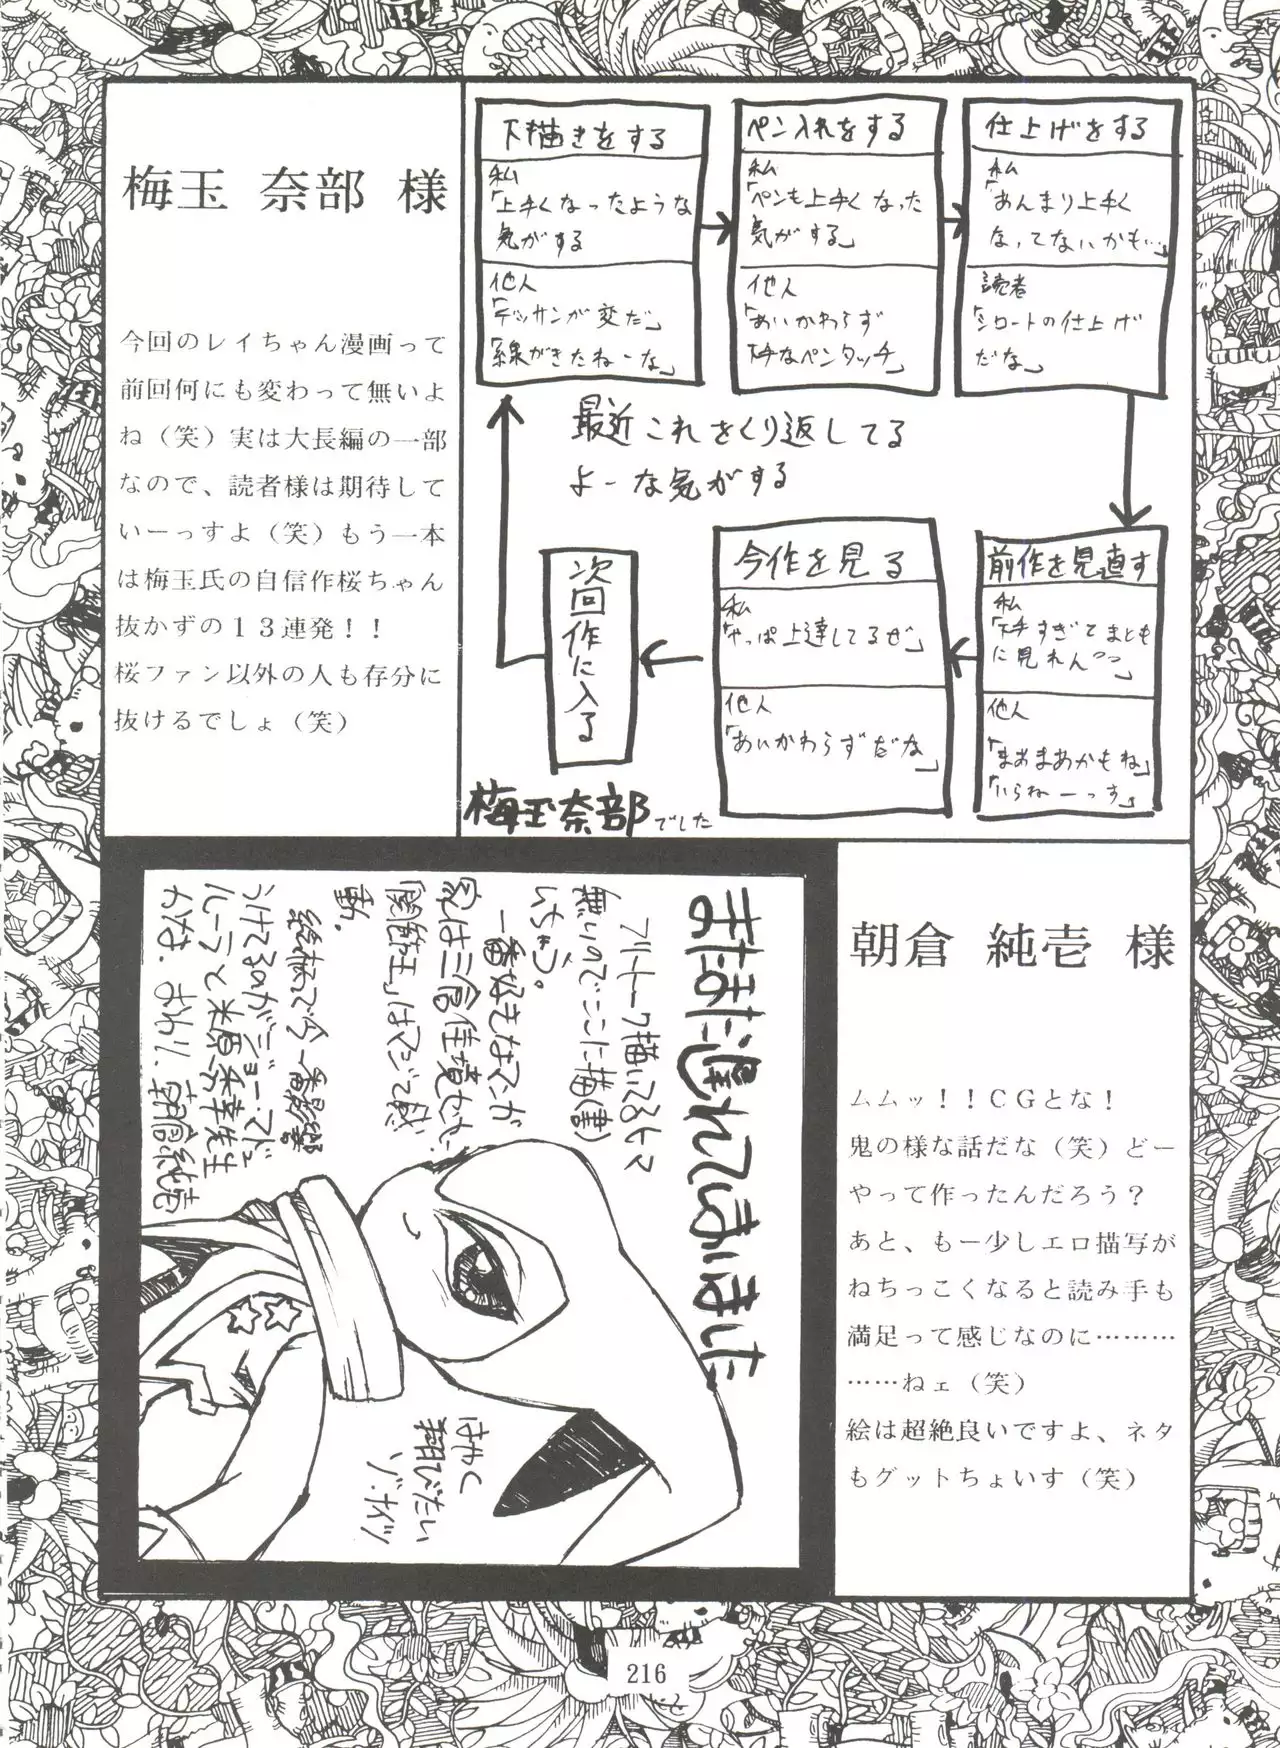 梅玉 奈部 様
今回のレイちゃん漫画って
前回何にも変わって無いよ
ね（笑）実は大長編の一部
なので、読者様は期待して
いーっすよ（笑）もう一本
は梅玉氏の自信作桜ちゃん
抜かずの１３連発！！
桜ファン以外の人も存分に
抜けるでしょ（笑）
下描きをする
私
「上手くなったような
気がする
他人
「デッサンが変だ」
「線がきたねーな」
ペン入れをする
私
「ペンも上手くなった
気がする」
他人
「あいかわらず
なペンタッチ」
仕上げをする
私
「あんまり上手く
なってないかも…」
読者
「シロートの仕上げ
だな」
最近これをくり返してる
よーな気がする
前作を見直す
私
すぎてまとも
に見れん
他人
「まあまあかもね」
「いらねーっす」
今作を見る
私
「やっぱ上達してるぜ」
他人
「あいかわらずだな」
次回作に入る
梅玉奈部でした
朝倉 純壱 様
ムムッ！！ＣＧとな！
鬼の様な話だな（笑）どー
やって作ったんだろう？
あと、もー少しエロ描写が
ねちっこくなると読み手も
満足って感じなのに………
……ねェ（笑）
絵は超絶良いですよ、ネタ
もグットちょいす（笑）
またまた遅れてしまいました
フリートーク描いてるヒマ
無いのでここに描（書）
いちゃう。
一番好きなマンガ
家は三倉佳境だ
「闘龍王」はマジで感
動。
絵描で今一番影響
うけてるのがジョー・マドュ
レーラと米原秀幸先生
かな。おわり。朝倉純壱
はやく
翔びたい
ゾ、ナイツ
216